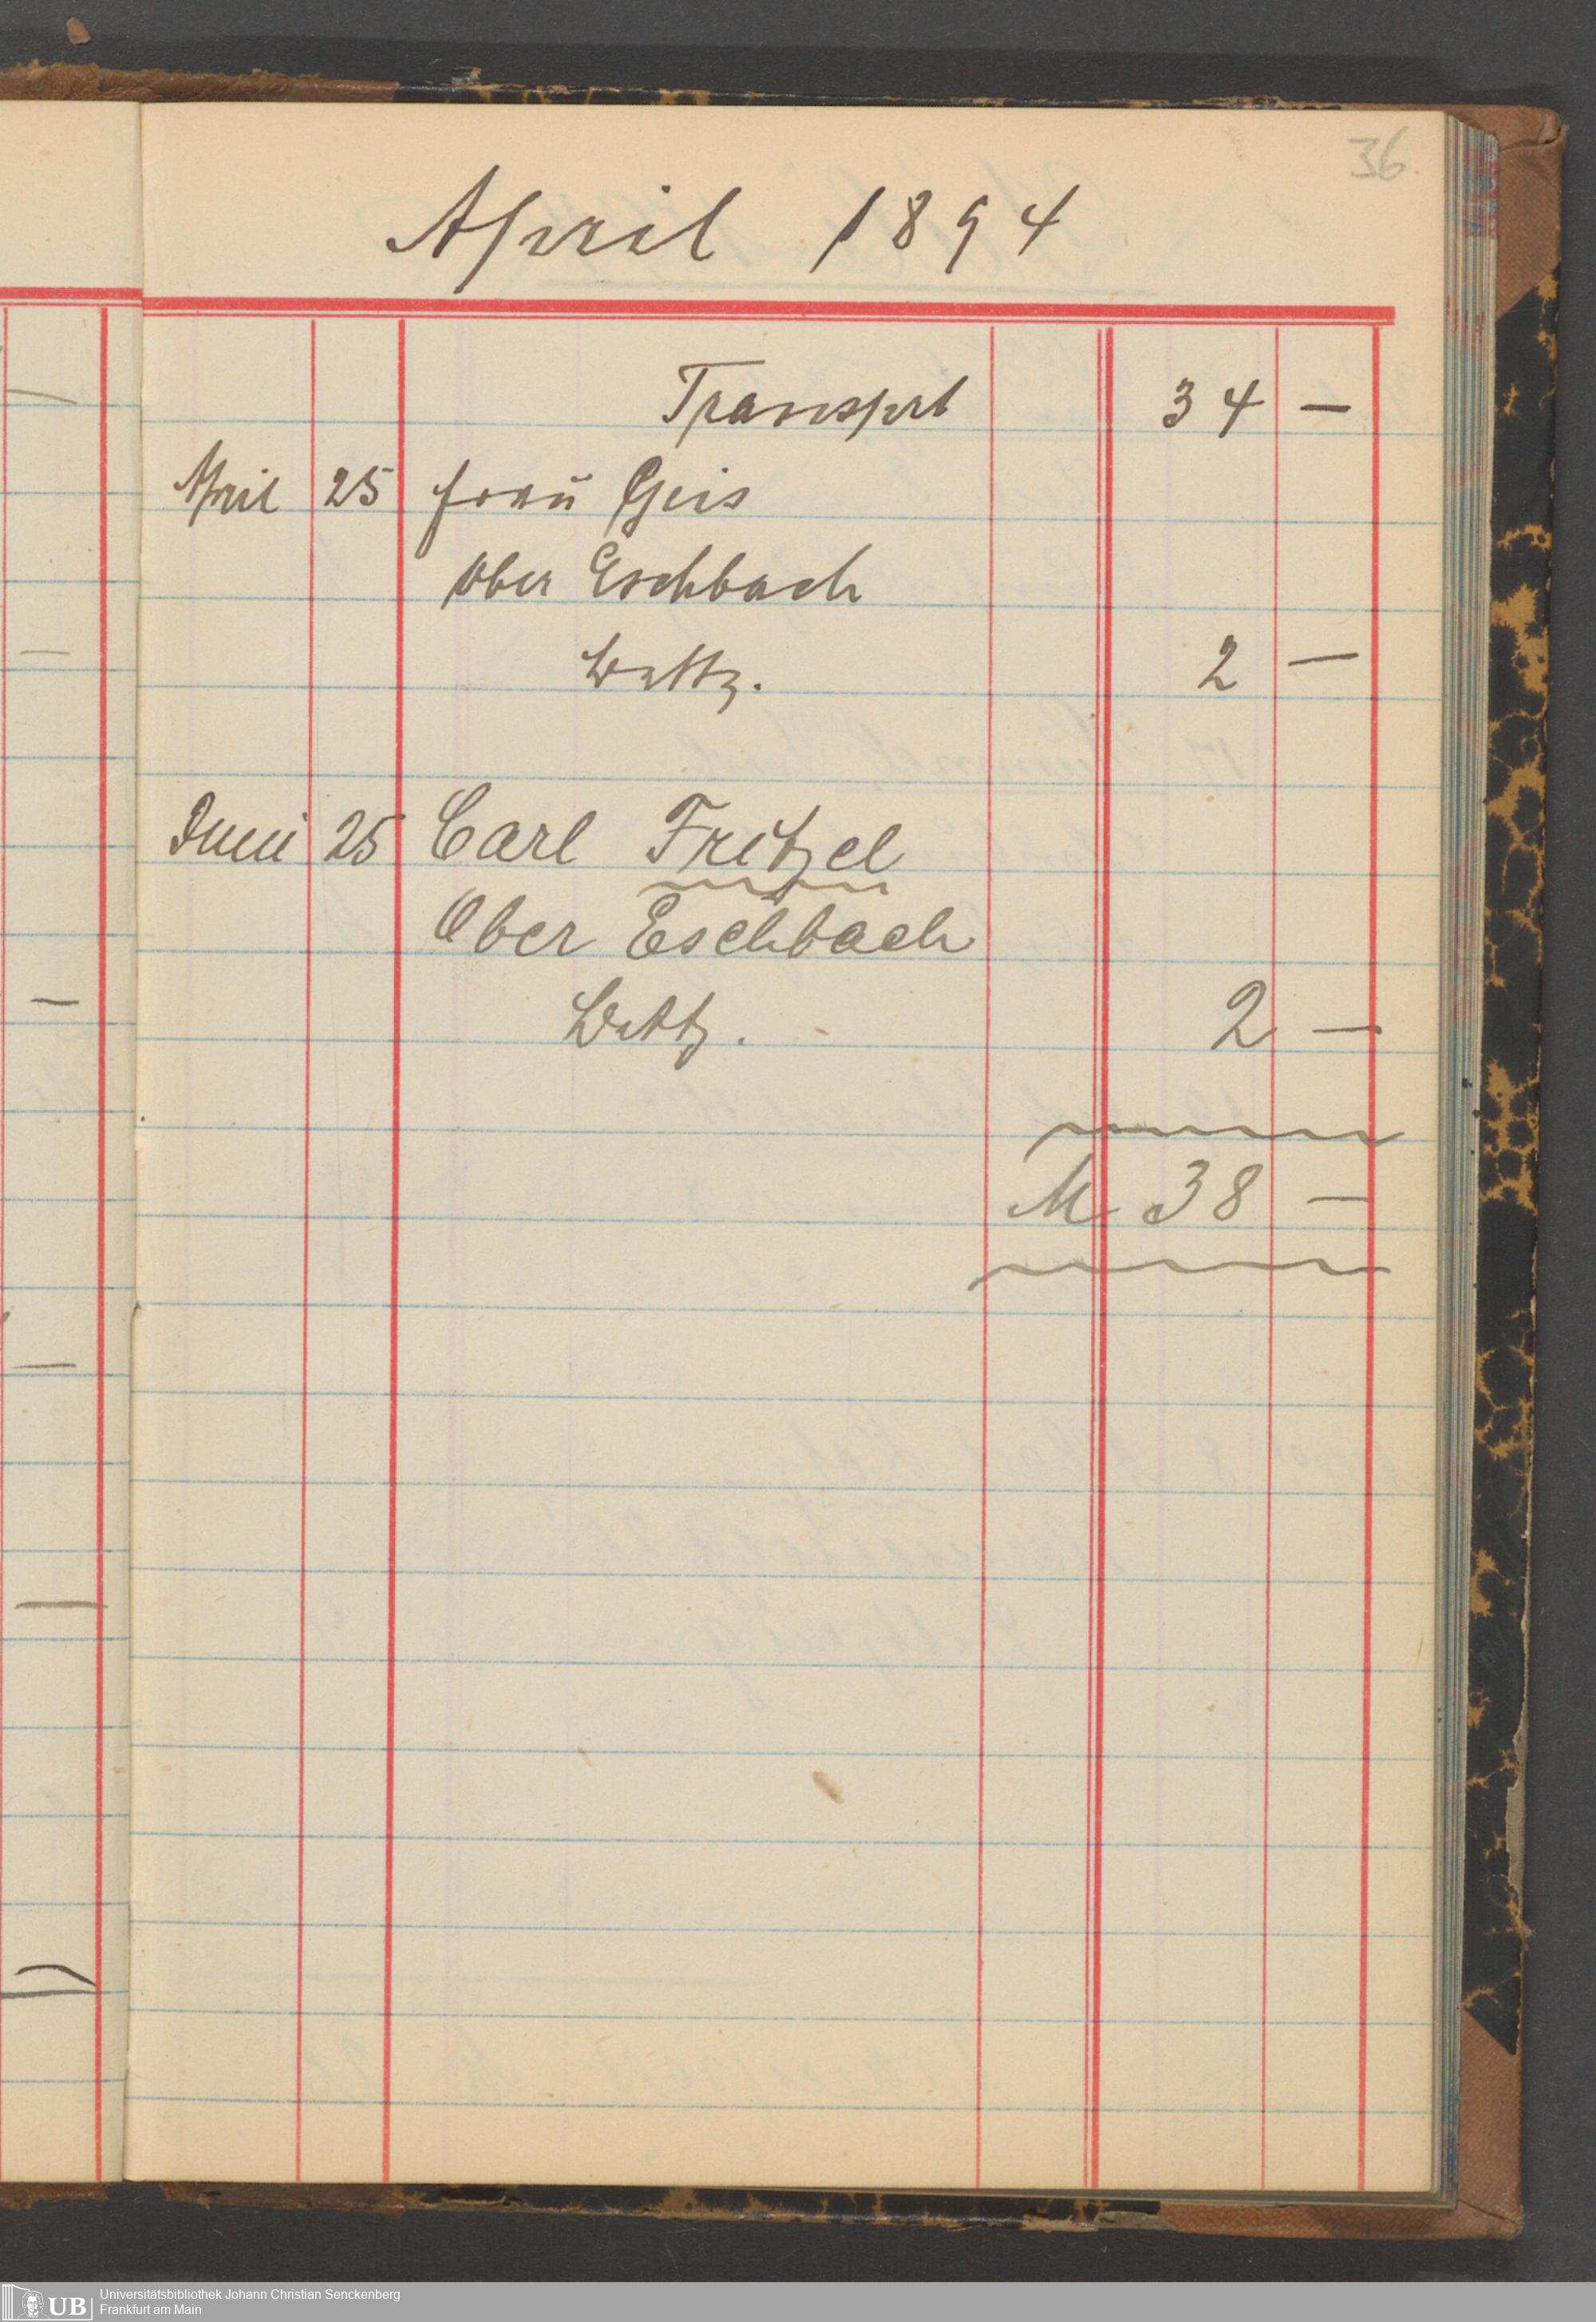 36.
April 1894
Transport 34 —
April 25 Frau Geis
Ober Eschbach
2 —
Juni 25 Carl Fritzel
Ober Eschbach
2 —
M 38 —
UB Universitätsbibliothek Johann Christian Senckenberg
Frankfurt am Main